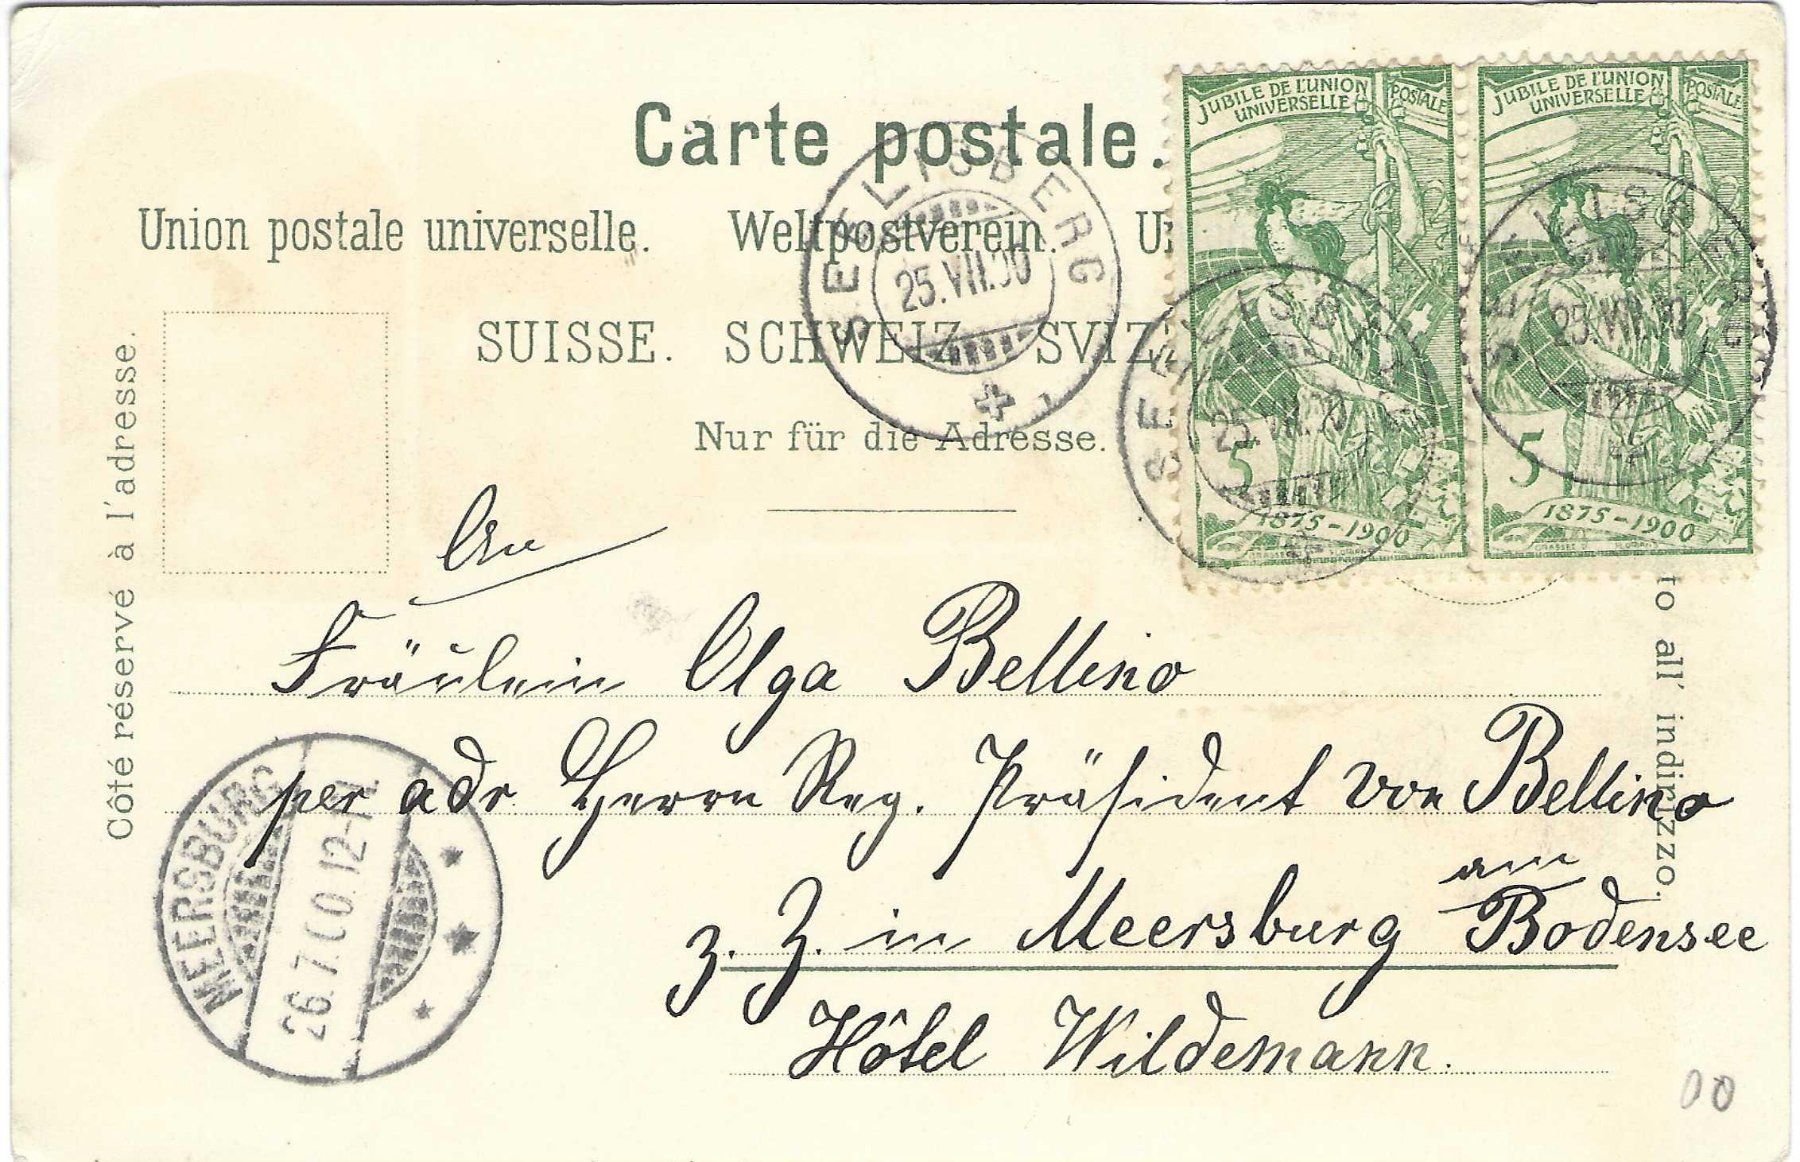 Carte postale.
Union postale universelle. Weltpostverein. U
SUISSE. SCHWEIZ. SVIZ
Nur für die Adresse.
Côté réservé à l'adresse.
to all' indirizzo.
JUBILE DE L'UNION POSTALE
UNIVERSELLE
5
1875-1900
JUBILE DE L'UNION POSTALE
UNIVERSELLE
5
1875-1900
SEELISBERG
25.VII.00
SEELISBERG
25.VII.00
SEELISBERG
25.VII.00
An
Fräulein Olga Bellino
per adr Herrn Reg. Präsident von Bellino
z. Z. in Meersburg am Bodensee
Hôtel Wildemann.
MEERSBURG
26.7.00.12-1N.
00